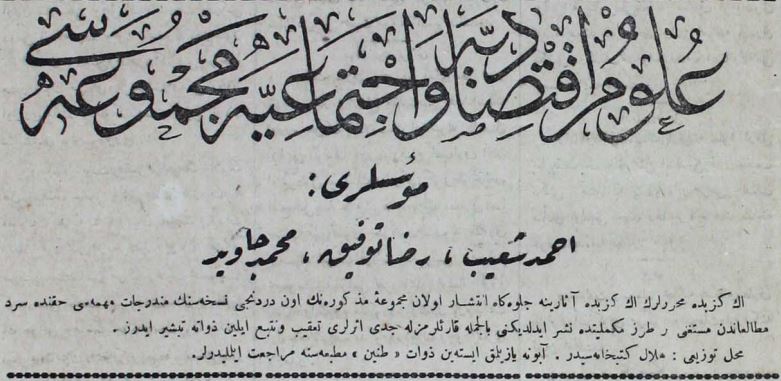 علوم اقتصادیه و اجتماعیه مجموعه سی
مؤسسلری :
احمد شعیب ، رضا توفیق ، محمد جاوید
اك كزیده محررلرك اك كزیده آثارینه جلوه‌كاه انتشار اولان مجموعۀ مذكوره‌نك اون دردنجی نسخه‌سنك مندرجات مهمه‌سی حقنده سرد
مطالعاتدن مستغنی ر طرز مكملیتده نشر ایدلدیكنی بالجمله قارئلرمزله جدی اثرلری تعقیب و تتبع ایلین ذواته تبشیر ایدرز .
محل توزیعی : هلال كتبخانه‌سیدر . آبونه یازیلق ایسته‌ین ذوات « طنین » مطبعه‌سنه مراجعت ایلیدرلر .